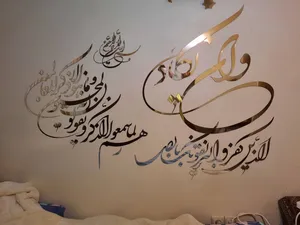 وإن يكاد
الذين كفروا ليزلقونك بأبصارهم
لما سمعوا الذكر ويقولون إنه
لمجنون وما هو إلا ذكر للعالمين